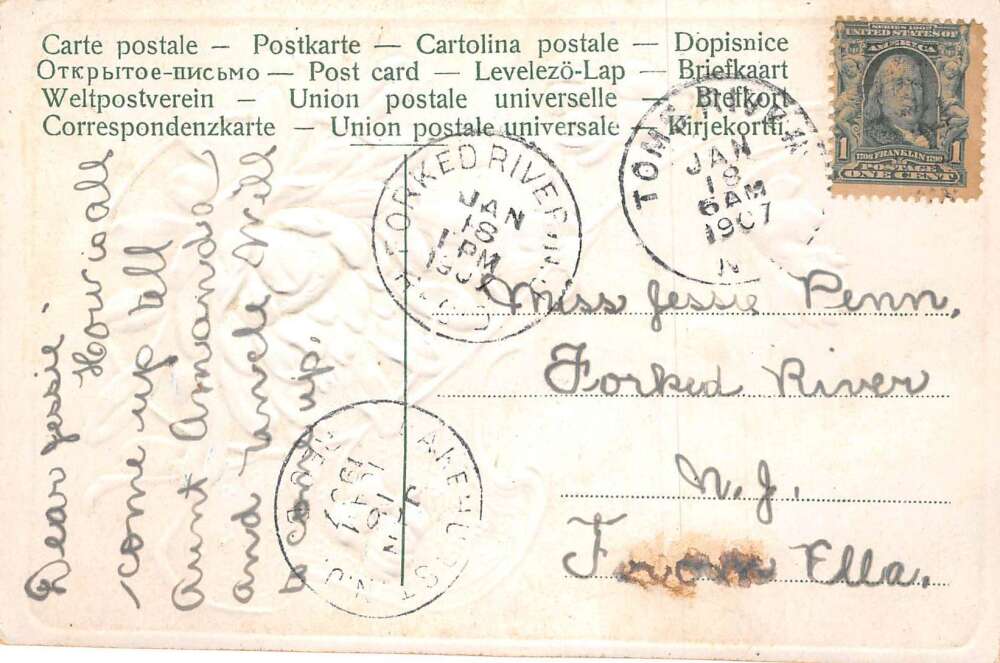 Carte postale — Postkarte — Cartolina postale — Dopisnice
Открытое-письмо — Post card — Levelezö-Lap — Briefkaart
Weltpostverein — Union postale universelle — Brefkort
Correspondenzkarte — Union postale universale — Kirjekortti
SERIES 1902
UNITED STATES OF
AMERICA
1706 FRANKLIN 1790
1 POSTAGE 1
ONE CENT
TOMS RIVER
JAN
18
6 AM
1907
N
FORKED RIVER
JAN
18
1 PM
1907
LAKEHURST N.J.
JAN
16
REC'D
Dear Jessie
How is all
come up tell
Aunt Amanda
and uncle Will
to come up.
Miss Jessie Penn,
Forked River
N.J.
From Ella.